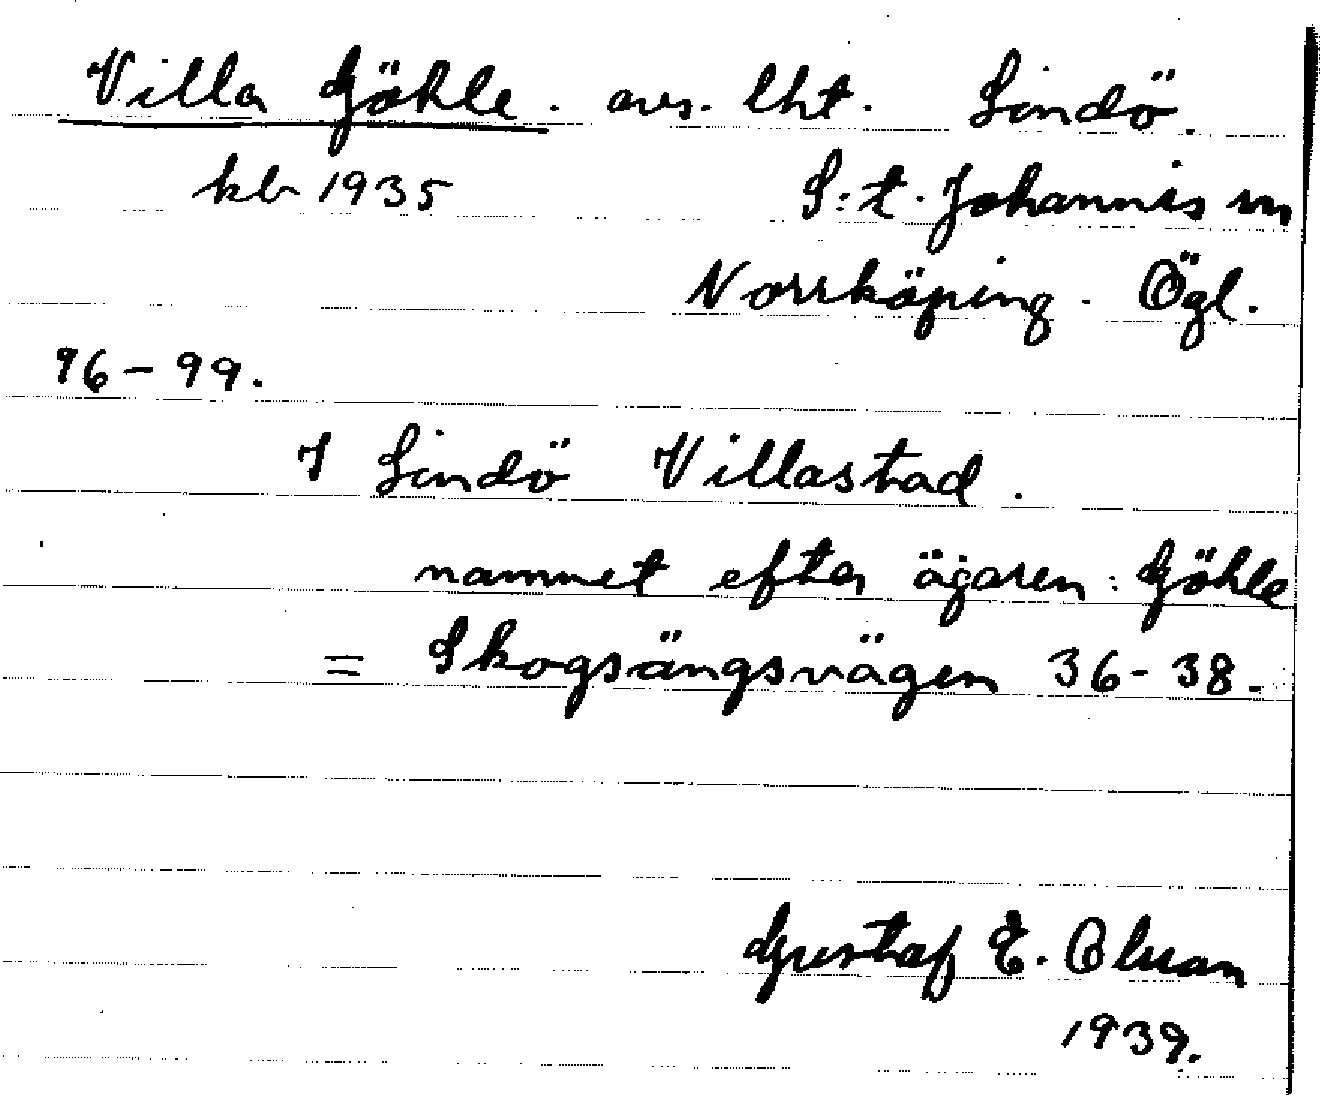 Villa Göhle. avs. lht. Lindö.
kb 1935 S:t. Johannis sn
Norrköping. Ögl.
96-99.
I Lindö Villastad.
namnet efter ägaren: Göhle
= Skogsängsvägen 36-38.
Gustaf E. Olsson
1939.